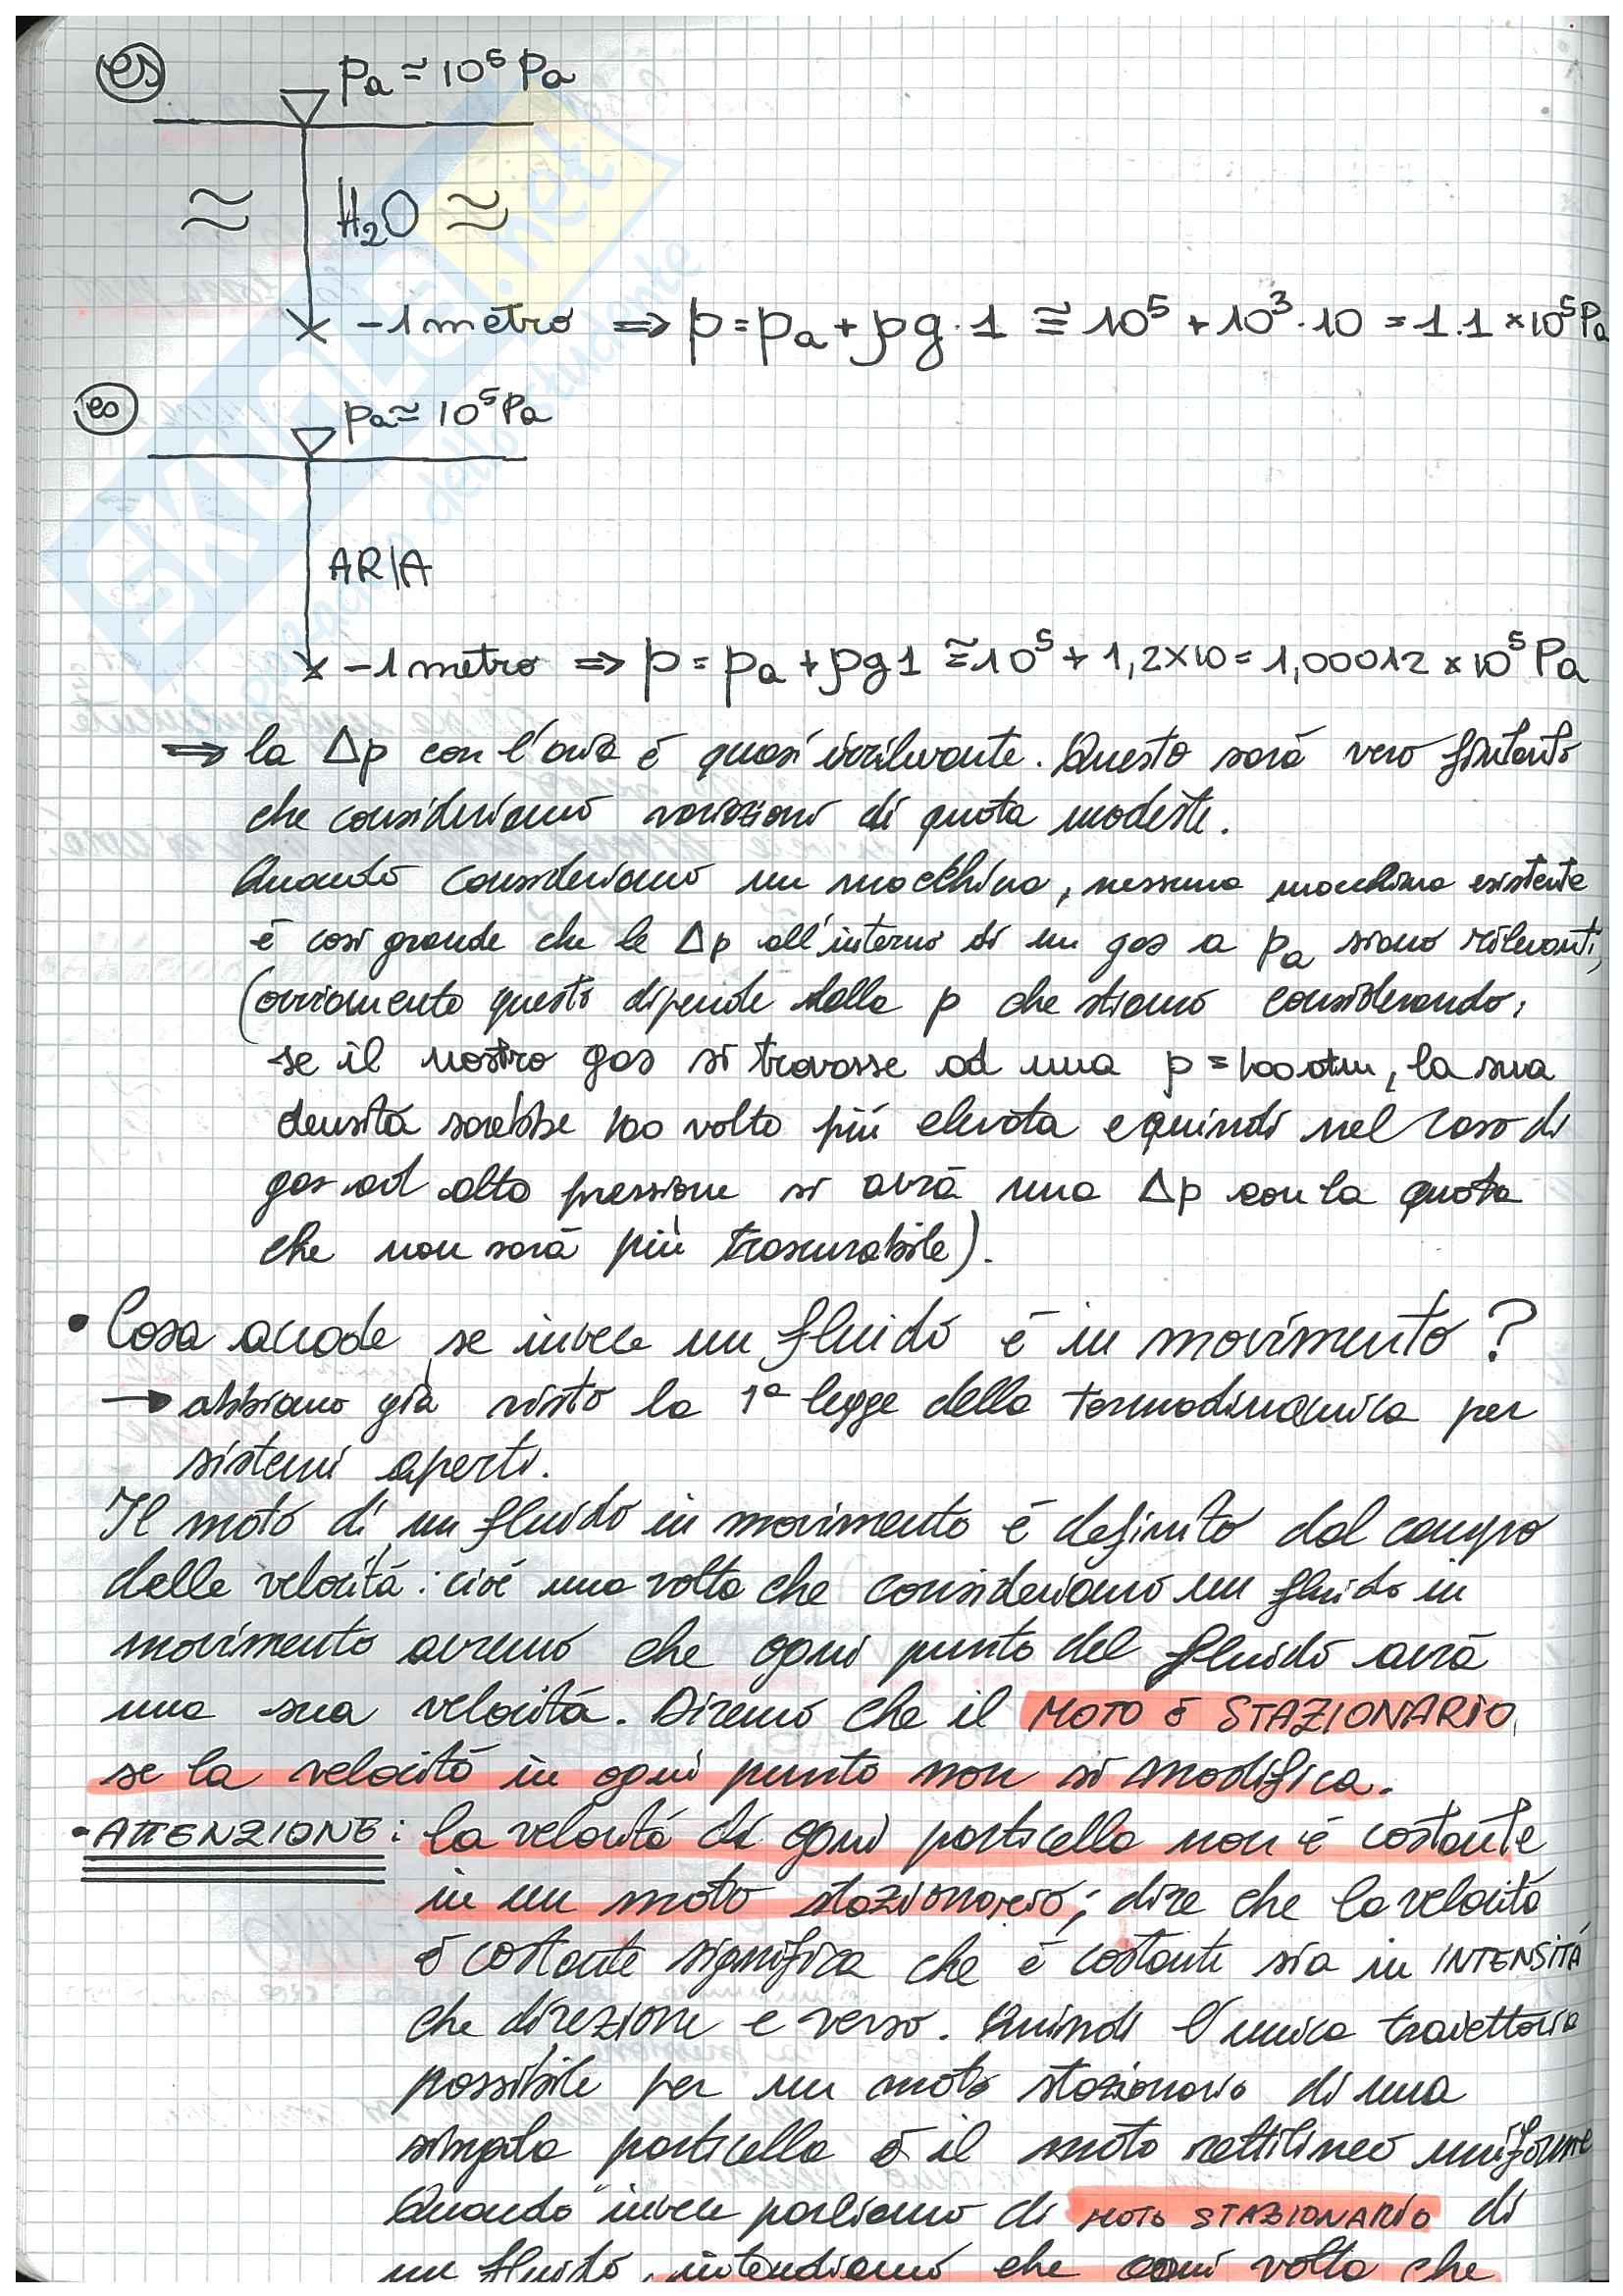 es
pa ≈ 10⁵ Pa
≈ H₂O ≈
-1 metro ⇒ p = pa + ρg·1 ≅ 10⁵ + 10³·10 = 1.1 × 10⁵ Pa
es
pa ≈ 10⁵ Pa
ARIA
-1 metro ⇒ p = pa + ρg1 ≅ 10⁵ + 1,2×10 = 1,00012 × 10⁵ Pa
⇒ la Δp con l'aria è quasi irrilevante. Questo sarà vero fintanto
che consideriamo variazioni di quota modeste.
Quando consideriamo un macchina, nessuna macchina esistente
è così grande che le Δp all'interno di un gas a pa siano rilevanti,
(ovviamente questo dipende dalla p che stiamo considerando;
se il nostro gas si trovasse ad una p = 100 atm, la sua
densità sarebbe 100 volte più elevata e quindi nel caso di
gas ad alta pressione si avrà una Δp con la quota
che non sarà più trascurabile).
• Cosa accade se invece un fluido è in movimento?
→ abbiamo già visto la 1ª legge della termodinamica per
sistemi aperti.
Il moto di un fluido in movimento è definito dal campo
delle velocità: cioè una volta che consideriamo un fluido in
movimento avremo che ogni punto del fluido avrà
una sua velocità. Diremo che il MOTO è STAZIONARIO,
se la velocità in ogni punto non si modifica.
• ATTENZIONE: la velocità di ogni particella non è costante
in un moto stazionario; dire che la velocità
è costante significa che è costante sia in INTENSITÀ
che direzione e verso. Quindi l'unica traiettoria
possibile per un moto stazionario di una
singola particella è il moto rettilineo uniforme
Quando invece parliamo di MOTO STAZIONARIO di
un fluido, intendiamo che ogni volta che
SKUOLA.net